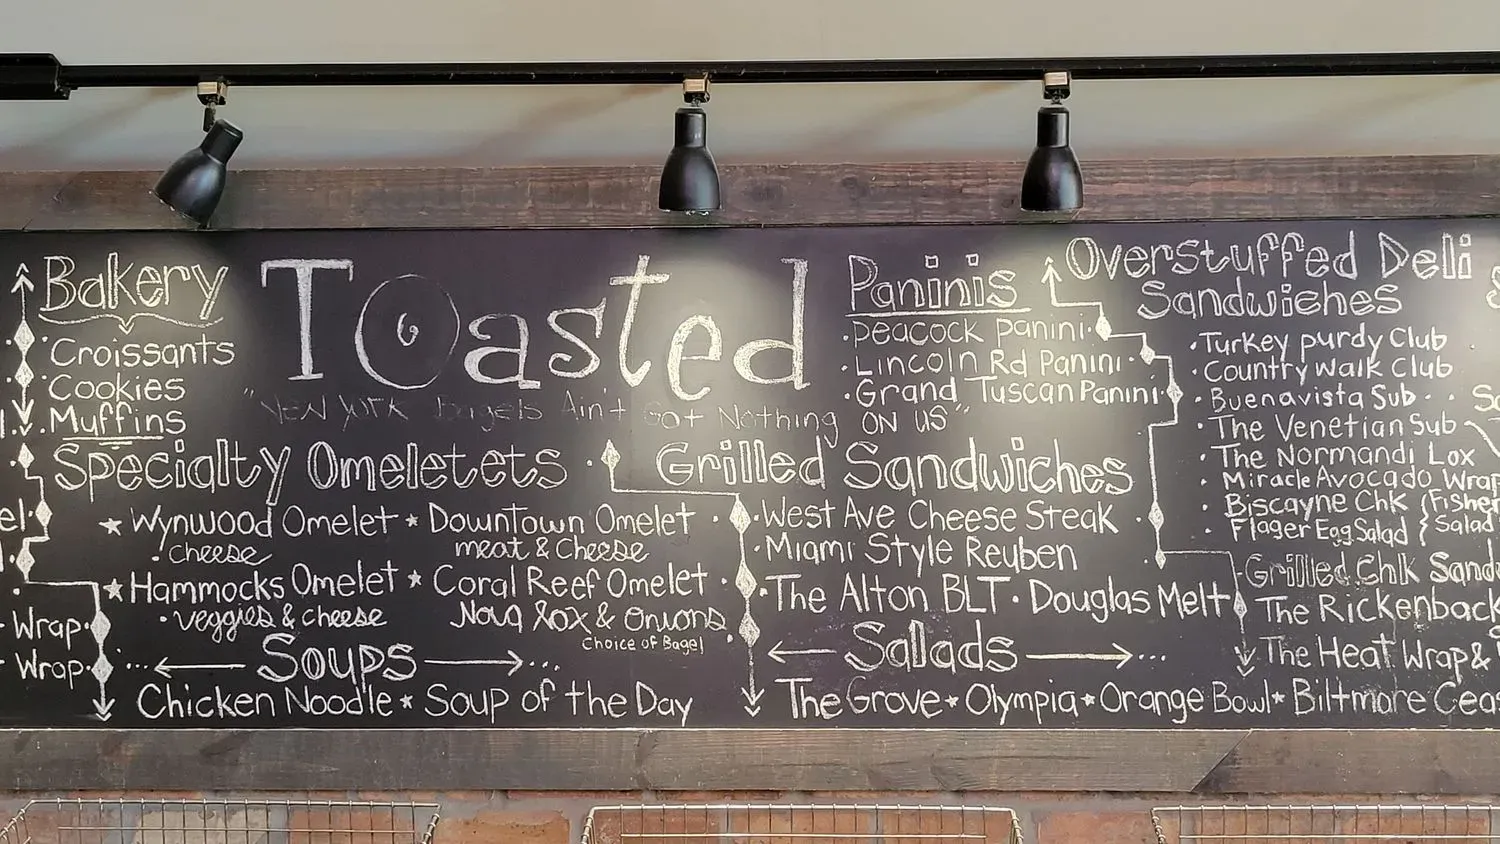 Bakery
Croissants
Cookies
Muffins
Toasted
"NEW YORK Bagels Ain't Got Nothing ON US"
Paninis
Peacock Panini
Lincoln Rd Panini
Grand Tuscan Panini
Overstuffed Deli
Sandwiches
Turkey purdy Club
Country walk Club
Buenavista Sub
The Venetian Sub
The Normandi Lox
Miracle Avocado Wrap
Biscayne Chk
Flager Egg Salad
{Fisher
Salad
Specialty Omeletets
★ Wynwood Omelet ★ Downtown Omelet
• cheese
meat & Cheese
★ Hammocks Omelet ★ Coral Reef Omelet
• veggies & cheese
Nova lox & Onions
Choice of Bagel
Grilled Sandwiches
• West Ave Cheese Steak
• Miami Style Reuben
• The Alton BLT • Douglas Melt
Grilled Chk Sand
The Rickenback
The Heat Wrap &
Wrap
Wrap
Soups
Chicken Noodle ★ Soup of the Day
Salads
The Grove ★ Olympia ★ Orange Bowl ★ Biltmore Ceas